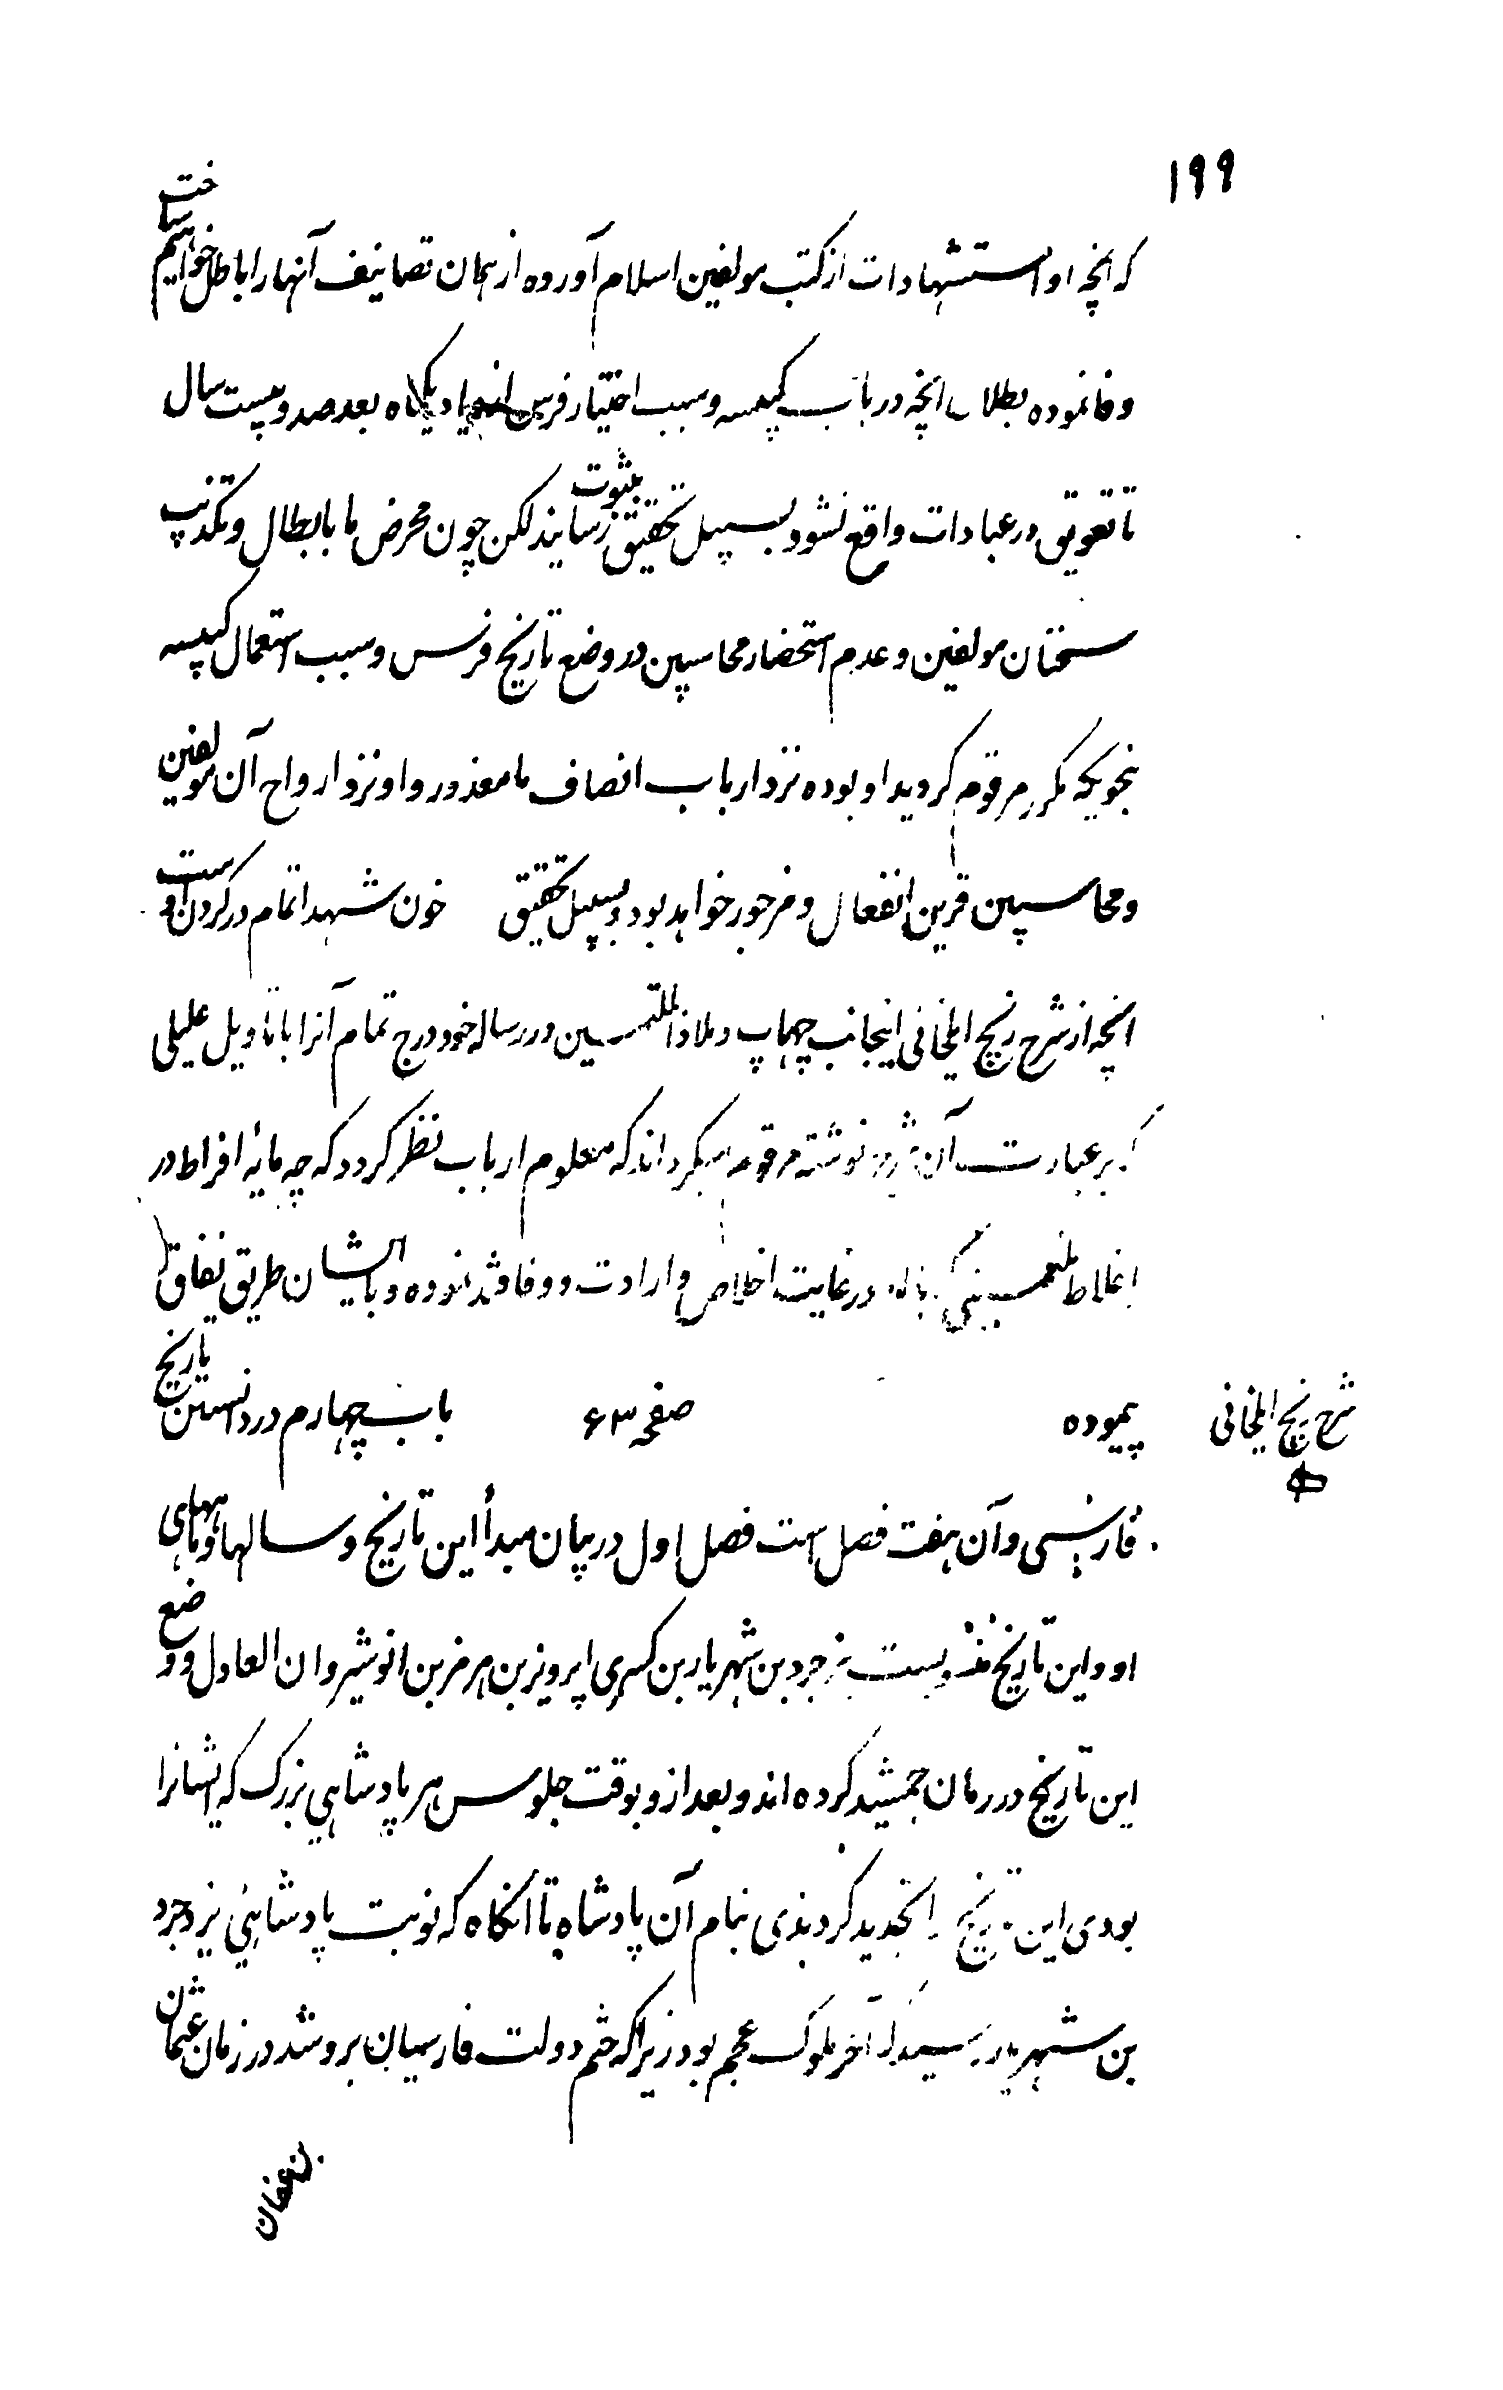 ۱۹۹
که انچه او استشهادات از کتب مولفین اسلام آورده از همان تصانیف آنها را باطل خواهیم ساخت
وفا نموده بطلان انچه در باب کبیسه و سبب اختیار فرس ازدیاد یکماه بعد صد و بیست سال
تا تعویق در عبادات واقع نشود بسبیل تحقیق بثبوت رسانید لکن چون محرض ما بابطال و تکذیب
سخنان مولفین و عدم استحضار محاسبین در وضع تاریخ فرس و سبب استعمال کبیسه
بنحویکه مکرر مرقوم گردید او بوده نزد ارباب انصاف ما معذور و او نزد ارواح آن مولفین
و محاسبین قرین انفعال و مزجور خواهد بود و بسبیل تحقیق خون شهدا تمام در گردن اوست
انچه از شرح زیج ایلخانی اینجانب چهاپ و ملاذ الملتمسین در رساله خود درج تمام آنرا با تاویل علیلی
که بر عبارت آن نوشته مرقوم میگرداند که معلوم ارباب نظر گردد که چه مایه افراط در
اغلاط ملتمسینی که در غایت اخلاص و ارادت و وفا نموده و با ایشان طریق نفاق
پیموده صفحه ۶۳ باب چهارم در دانستن تاریخ
شرح زیج ایلخانی
فارسی و آن هفت فصل است فصل اول در بیان مبدأ این تاریخ و سالها و ماههای
او و این تاریخ منسوبست یزدجرد بن شهریار بن کسری اپرویز بن هرمز بن انوشیروان العادل و وضع
این تاریخ در زمان جمشید کرده اند و بعد ازو بوقت جلوس هر پادشاهی بزرگ که ایشانرا
بودی این تاریخ را تجدید کردندی بنام آن پادشاه تا آنگاه که نوبت پادشاهی یزدجرد
بن شهریار رسید که آخر ملوک عجم بود زیرا که ختم دولت فارسیان برو شد در زمان عثمان
بن عفان